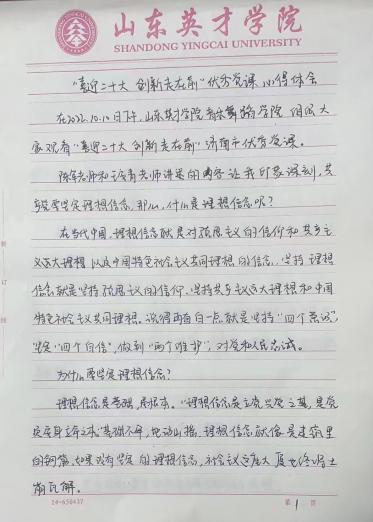 山东英才学院
SHANDONG YINGCAI UNIVERSITY
"喜迎二十大 创新走在前"优秀党课 心得体会
在2022.10.10日下午,山东英才学院音乐舞蹈学院 组织大
家观看"喜迎二十大 创新走在前"济南市优秀党课。
陈军老师和王老师讲述的内容 让我印象深刻,共
要坚定理想信念,那么,什么是理想信念呢?
在当代中国,理想信念就是对马克思主义的信仰和共产主
义远大理想 以及中国特色社会主义共同理想的信念。坚持 理想
信念就是坚持马克思主义的信仰、坚持共产主义远大理想和中国
特色社会主义共同理想。说得再直白一点就是坚持"四个意识",
坚定"四个自信",做到"两个维护",对党和人民忠诚。
为什么要坚定理想信念?
理想信念是基础,是根本。"理想信念是立党兴党之基,是党
员安身立命之本"基础不牢,地动山摇。理想信念就像是建筑里
的钢筋,如果没有坚定的理想信念,社会主义这座大厦也终将土
崩瓦解。
14-650437
第 1 页